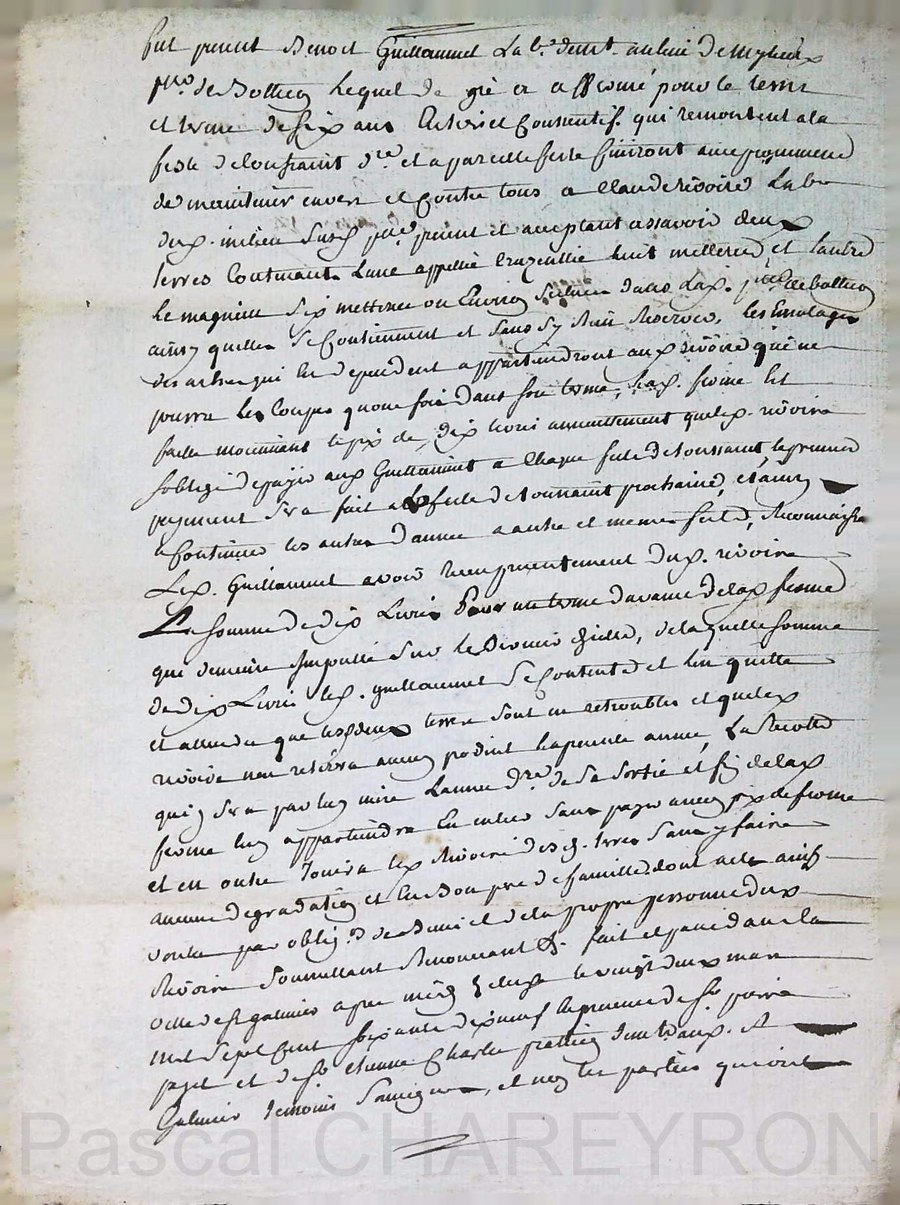 fut present Benoit Guillaumet Lab.r demt. au lieu de
pss.e de Bottieu Lequel de gré a affermé pour le tems
et terme de six ans Entiers et Consentifs qui remontent a la
feste de Toussaint d.re et a pareille feste finiront avec promesse
de maintenir envers et Contre tous a Claude revoire Lab.r
dud. milieu susd. pss.e present et acceptant assavoir deux
terres Contenant Lune appellée huit metterées et Lautre
Le magniat six metterées ou Environ scituées dans lad. psse de bottieu
ainsy quelles se Contiennent et sans s'y Rien Reserver, les Emolages
des arbres qui en dependent appartiendront aud. revoire qui ne
pourra les Couper quune fois dans son terme, lad. ferme Est
faitte moiennant le prix de dix livres annuellement que led. revoire
soblige de payer aud. Guillaumet a Chaque feste de toussaint, le premier
payement sera fait a la feste de toussaint prochaine, et ainsy
a Continuer les autres dannée a autre et memes feste, Reconnaissant
Led. Guillaumet avoir reçu presentement dud. revoire
La somme de dix Livres pour un terme davance de lad. ferme
qui demeure Imputée sur le Dernier, de laquelle somme
de dix Livres led. guillaumet se Contente et l'en quitte
et attendu que lesd. deux terres sont en et que led.
revoire nen retirera aucun produit la presente année, La Recolte
qui y sera par luy mise Lannée d.re de sa sortie et fin de lad.
ferme luy appartiendra En entier sans payer aucun prix de ferme
et en outre Jouira led. Revoire desd. terres sans y faire
aucune degradation et En Bon pere de famille dont acte ainsy
voulu par oblig.on de Biens et de la propre personne dud.
Revoire Soumettant Renonçant &. fait et passé dans la
ville de st galmier apres midy le vingt deux mars
mil sept cent soixante dix neuf En presence de sr pierre
et de sr etienne Charles praticien aud. st
Galmier temoins Soussignés, et non les parties qui ont
Pascal CHAREYRON